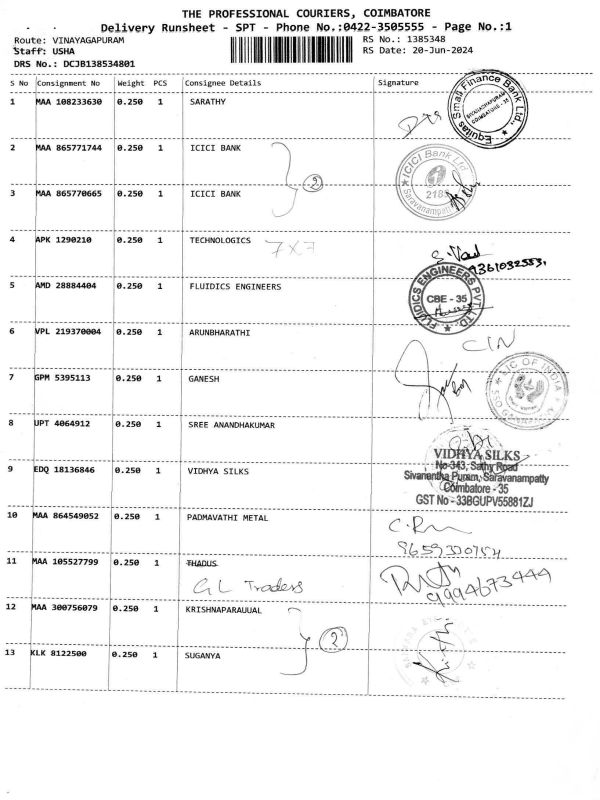 THE PROFESSIONAL COURIERS, COIMBATORE
Delivery Runsheet - SPT - Phone No.:0422-3505555 - Page No.:1
Route: VINAYAGAPURAM RS No.: 1385348
Staff: USHA RS Date: 20-Jun-2024
DRS No.: DCJB138534801
S No Consignment No Weight PCS Consignee Details Signature
1 MAA 108233630 0.250 1 SARATHY
Equitas Small Finance Bank Ltd.,
COIMBATORE - 35
2 MAA 865771744 0.250 1 ICICI BANK
2
ICICI Bank Ltd
218
Saravanampat
3 MAA 865770665 0.250 1 ICICI BANK
4 APK 1290210 0.250 1 TECHNOLOGICS
7x7
9361032553
5 AMD 28884404 0.250 1 FLUIDICS ENGINEERS
FLUIDICS ENGINEERS PVT LTD
CBE - 35
6 VPL 219370004 0.250 1 ARUNBHARATHI
CIN
7 GPM 5395113 0.250 1 GANESH
LIC OF INDIA
8 UPT 4064912 0.250 1 SREE ANANDHAKUMAR
9 EDQ 18136846 0.250 1 VIDHYA SILKS
VIDHYA SILKS
No-343, Sathy Road
Sivanantha Puram, Saravanampatty
Coimbatore - 35
GST No - 33BGUPV55881ZJ
10 MAA 864549052 0.250 1 PADMAVATHI METAL
11 MAA 105527799 0.250 1 THADUS
GL Traders
9994673444
12 MAA 300756079 0.250 1 KRISHNAPARAUUAL
2
13 KLK 8122500 0.250 1 SUGANYA